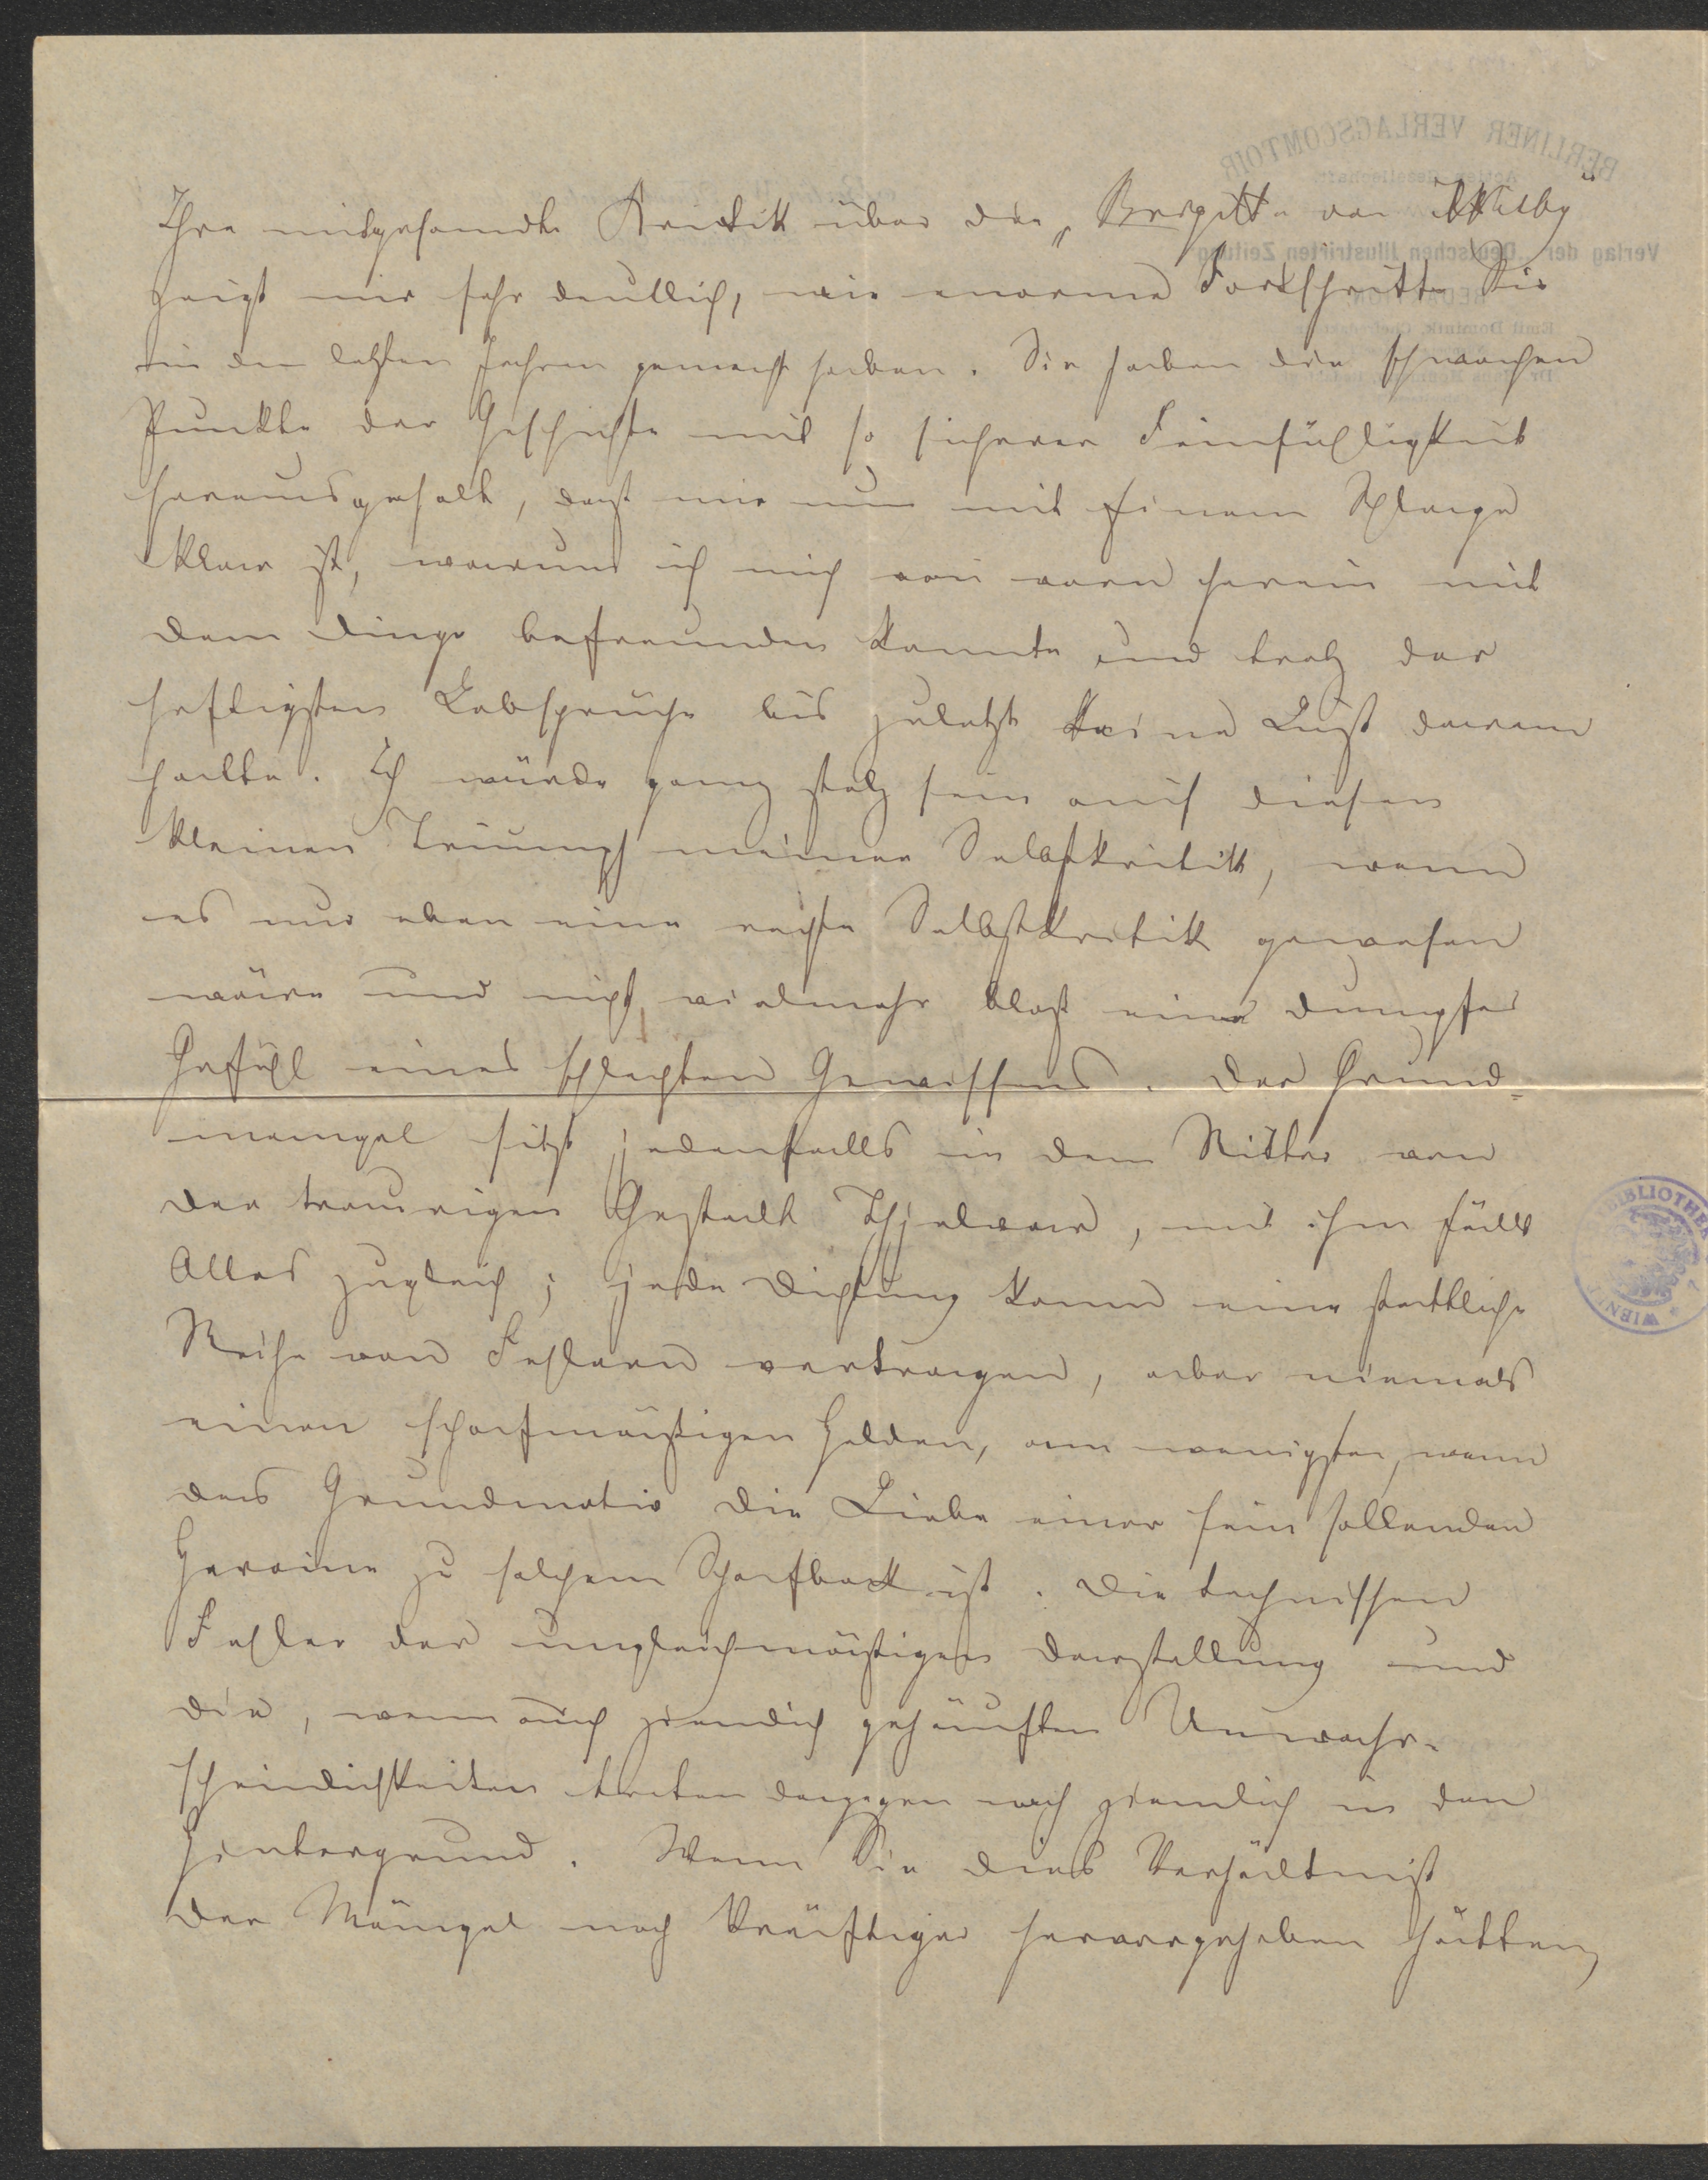 Ihre mitgesandte Kritik über die „Brigitte von Wisby“
zeigt mir sehr deutlich, wie enorme Fortschritte Sie
in den letzten Jahren gemacht haben. Sie haben die schwachen
Punkte der Geschichte mit so sicherer Feinfühligkeit
herausgeholt, daß mir nun mit einem Schlage
klar ist, warum ich mich von vorn herein mit
dem Dinge befreunden konnte und trotz der
heftigsten Lobsprüche bis zuletzt keine Lust daran
hatte. Ich würde ganz stolz sein auf diesen
kleinen Triumph meiner Selbstkritik, wenn
es nur eben eine rechte Selbstkritik gewesen
wäre und nicht vielmehr bloß ein dumpfes
Gefühl eines schlechten Gewissens. Der Grund-
mangel sitzt jedenfalls in dem Ritter von
der traurigen Gestalt Thjelvar, mit ihm fällt
Alles zugleich; jede Dichtung kann eine stattliche
Reihe von Fehlern vertragen, aber niemals
einen schafmäßigen Helden, am wenigsten, wenn
das Grundmotiv die Liebe einer sein sollenden
Heroine zu solchem Schafbock ist. Die technischen
Fehler der ungleichmäßigen Darstellung und
die, wenn auch ziemlich gehäuften Unwahr-
scheinlichkeiten treten dagegen noch ziemlich in den
Hintergrund. Wenn Sie dies Verhältniß
der Mängel noch kräftiger hervorgehoben hätten,
BERLINER VERLAGSCOMTOIR
Actien-Gesellschaft
Verlag der „Deutschen Illustrirten Zeitung“
REDACTION
Emil Dominik, Chefredakteur
BIBLIOTHEK
WIEN